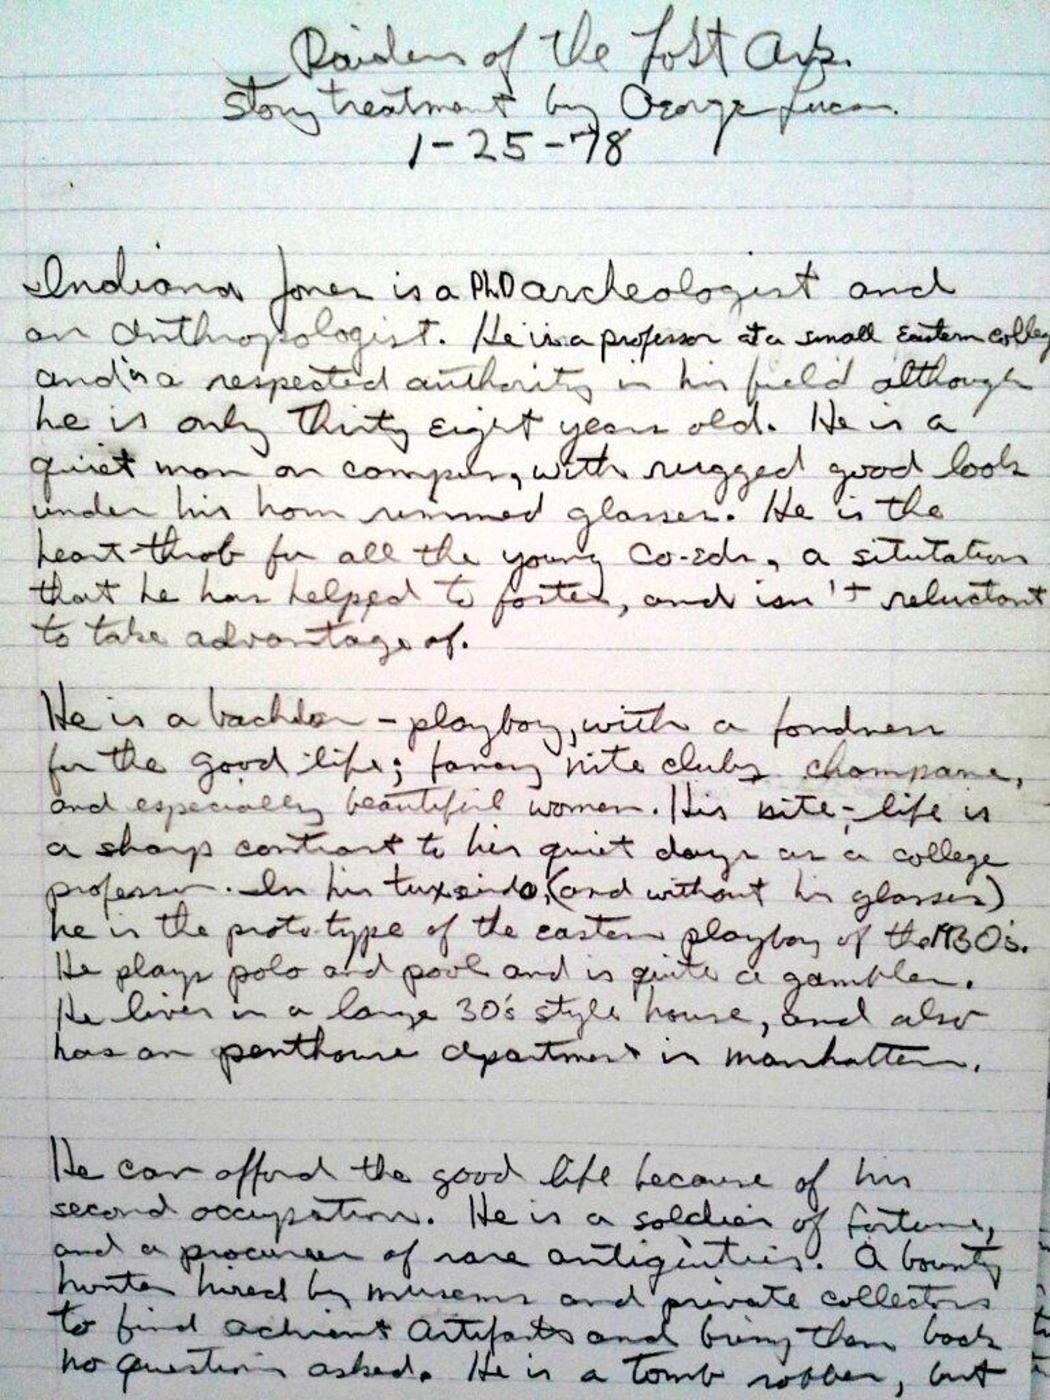 Raiders of the Lost Ark.
Story treatment by George Lucas.
1-25-78
Indiana Jones is a PhD archeologist and
an anthropologist. He is a professor at a small Eastern colleg
and is a respected authority in his field although
he is only thirty eight years old. He is a
quiet man on campus, with rugged good looks
under his horn rimmed glasses. He is the
heart-throb for all the young co-eds, a situtation
that he has helped to foster, and isn't reluctant
to take advantage of.
He is a bachelor - playboy, with a fondness
for the good life; fancy nite clubs champane,
and especially beautiful women. His nite-life is
a sharp contrast to his quiet days as a college
professor. In his tuxseido, (and without his glasses)
he is the proto type of the eastern playboy of the 1930's.
He plays polo and pool and is quite a gambler.
He lives in a large 30's style house, and also
has an penthouse apartment in manhatten.
He can afford the good life because of his
second occupation. He is a soldier of fortune,
and a procurer of rare antiquities. A bounty
hunter hired by museums and private collectors
to find achient artifacts and bring them back
no questions asked. He is a tomb robber, but